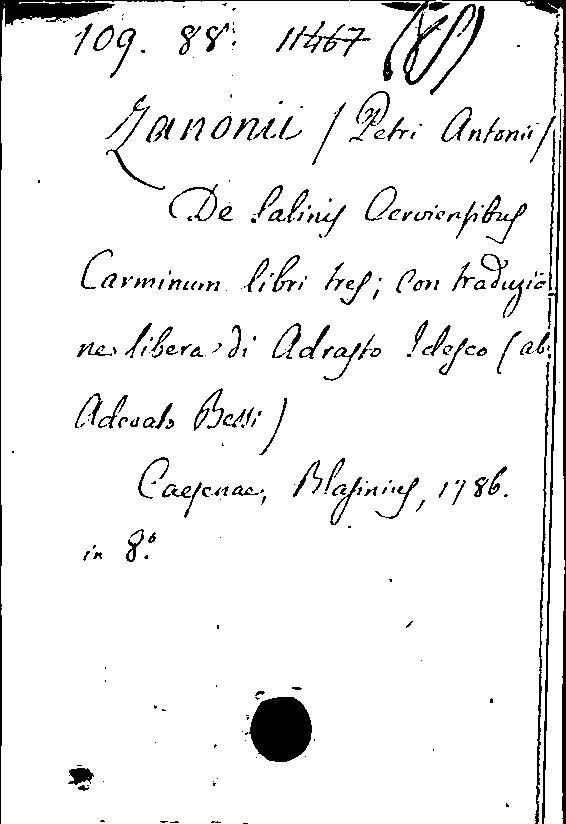 109. 88. 11467 (8)
Zanonii / Petri Antonii /
De Salinis Cerviensibus
Carminum libri tres; con traduzio
ne libera di Adrasto Idesco (ab.
Bessi)
Caesenae, Blasinius, 1786.
in 8.º